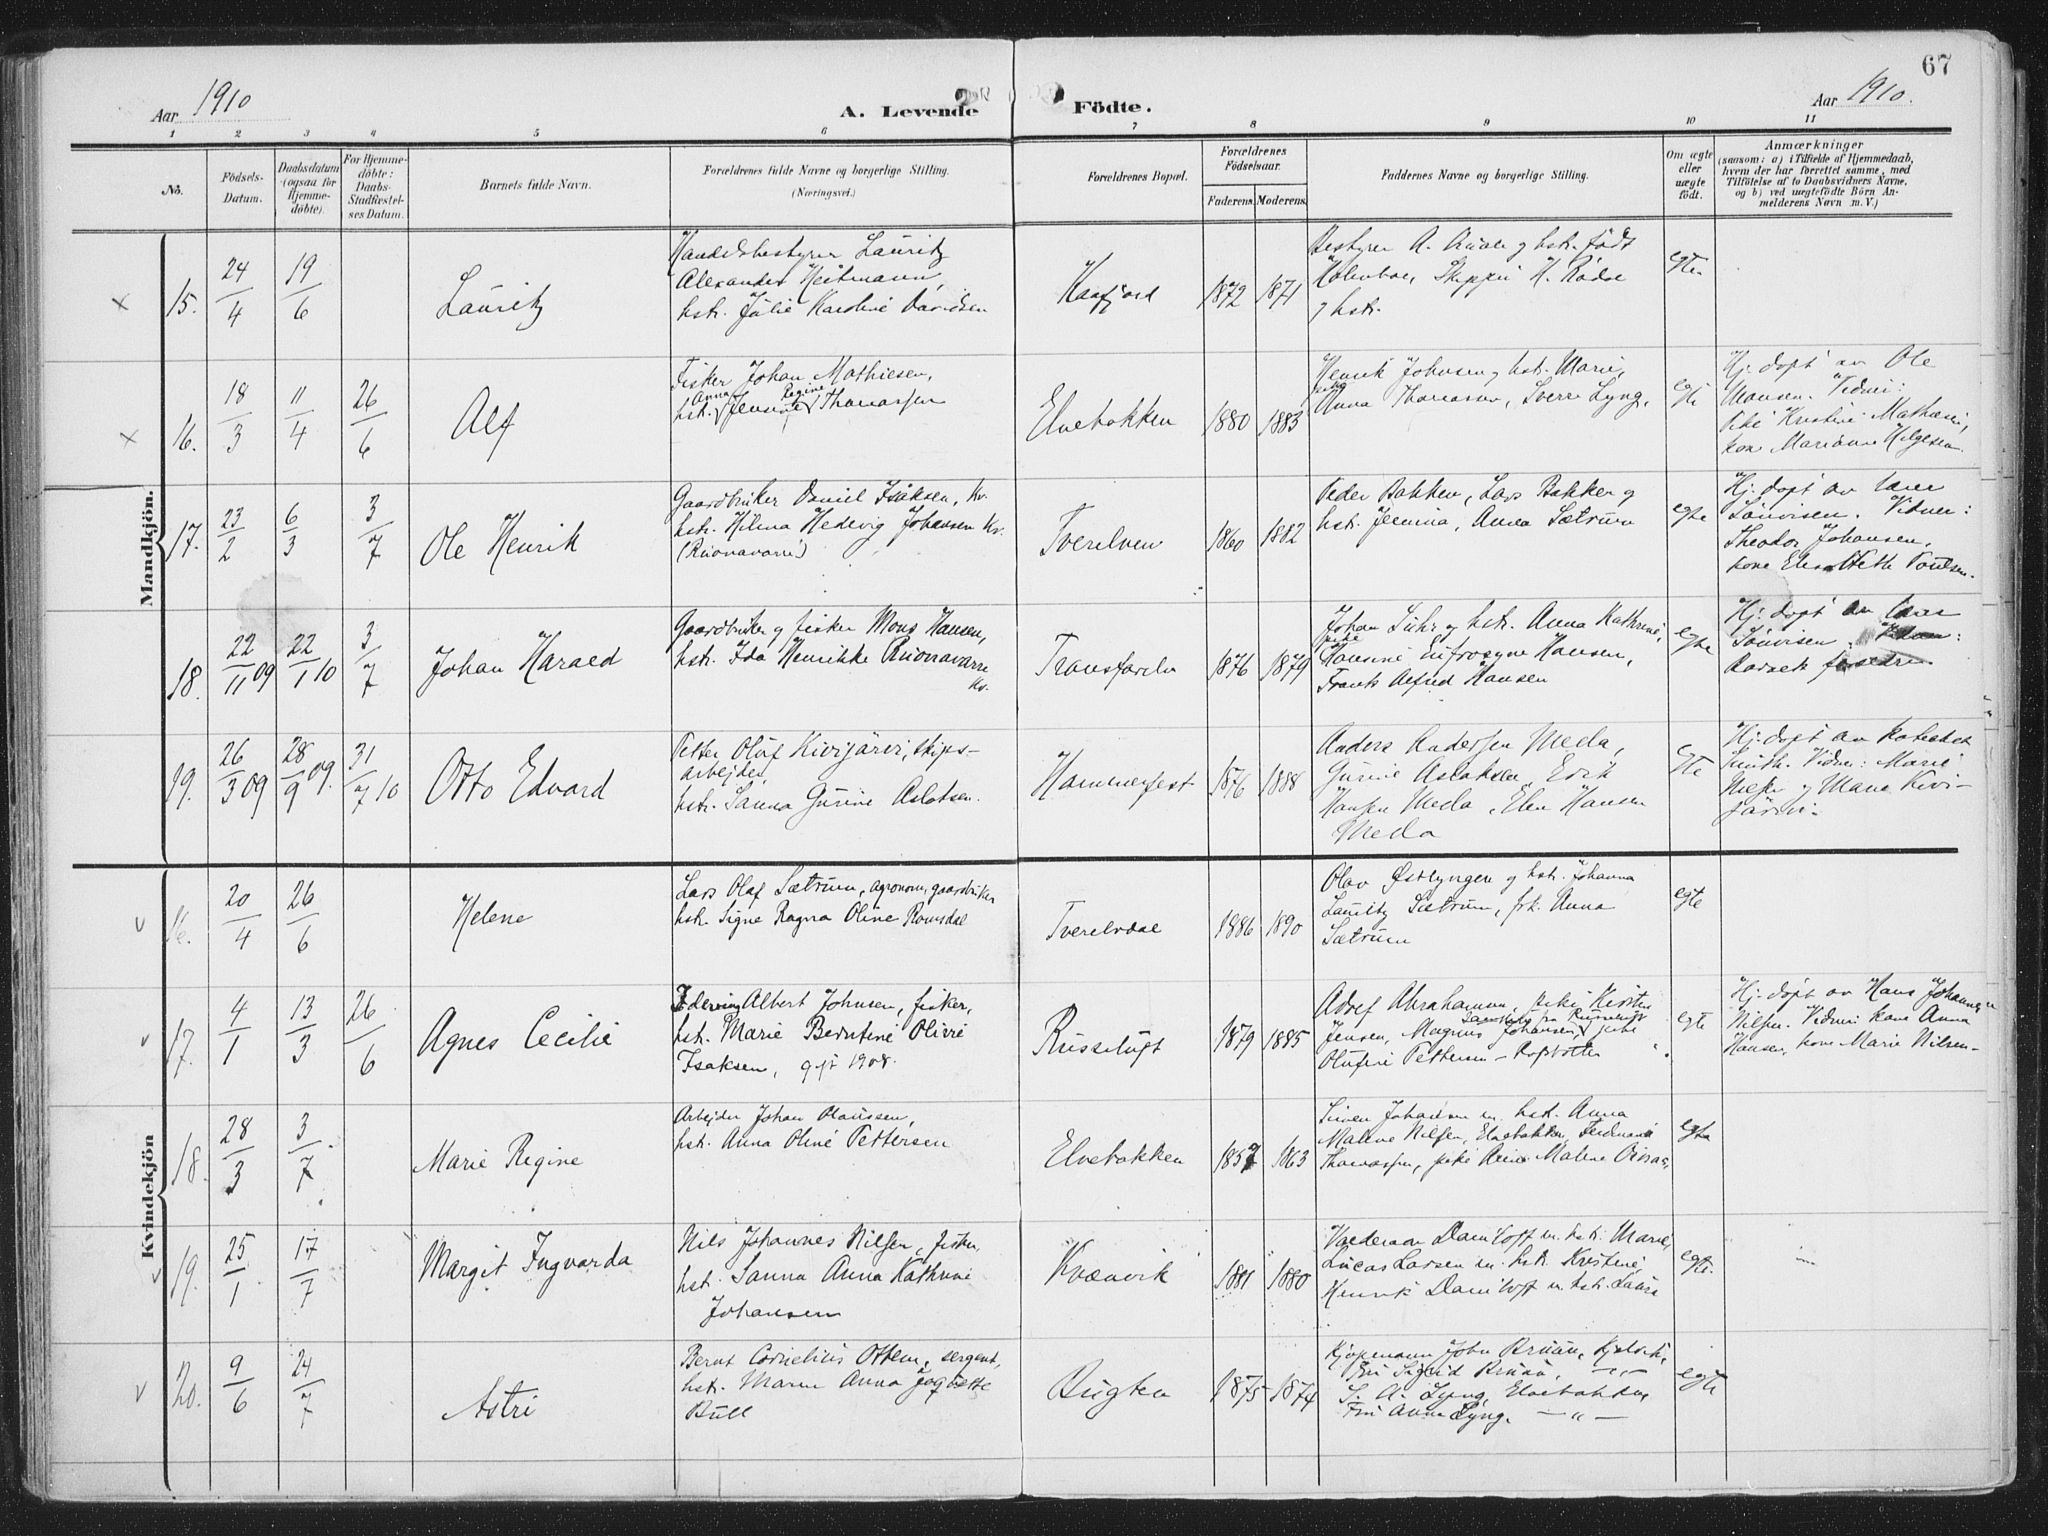 67
Aar 1910
A. Levende Födte.
Aar 1910.
1 2 3 4 5 6 7 8 9 10 11
No.
Födsels-
Datum.
Daabsdatum
(ogsaa for
Hjemme-
döbte).
For Hjemme-
döbte:
Daabs-
Stadfæstel-
ses Datum.
Barnets fulde Navn.
Forældrenes fulde Navne og borgerlige Stilling.
(Næringsvei.)
Forældrenes Bopæl.
Forældrenes
Födselsaar.
Faderens. Moderens.
Faddernes Navne og borgerlige Stilling.
Om ægte
eller
uægte
födt.
Anmærkninger
(saasom: a) i Tilfælde af Hjemmedaab,
hvem der har forrettet samme, med
Tilföielse af to Daabsvidners Navne,
og b) ved uægtefödte Börn An-
melderens Navn m. V.)
Mandkjön.
15. 24/4 19/6
Lauritz
Handelsbestyrer Lauritz
Alexander Heitmann,
hstr. Julie Karoline Davidsen
Kaafjord
1872 1871
Bestyrer A. og hstr. født
Holmboe, Skipper H.
og hstr.
egte
16. 18/3 11/4 26/6
Alf
Fisker Johan Mathiesen,
hstr. Anna Regine Thomassen
Elvebakken
1880 1883
Henrik Johnsen og hstr. Marie,
pike
Anna Thomassen, Sverre Lyng,
Hj. døpt av Ole
Monsen. Vidner:
Pike Kristine
kone Marianne Helgesen
17. 23/2 6/3 3/7
Ole Henrik
Gaardbruker Daniel Isaksen, Kv.
hstr. Hilma Hedevig Johansen Kv.
(Riionavarre)
Tverelven
1860 1882
Peder Bakken, Lars Bakken og
hstr. Jemina, Anna Sætrum
egte
Hj. døpt av lærer
Tønvisen. Vidner:
Theodor Johansen,
kone Elisabeth
18. 22/11 09 22/1 10 3/7
Johan Harald
Gaardbruker og fisker Mons Hansen,
hstr. Ida Henrikke Riionavarre
Kv.
Transfarelv
1876 1879
Johan og hstr. Anna Kathrine,
pike
Hansine Eufrosyne Hansen,
Frants Alfred Hansen
egte
Hj. døpt av lærer
Tønvisen.
Barnets forældre
19. 26/3 09 28/9 09. 31/7 10
Otto Edvard
Petter Oluf Kivijärvi, skips-
arbejder,
hstr. Sanna Gurine Aslaksen.
Hammerfest
1876 1888
Anders Andersen Meda,
Gurine Aslaksen, Erik
Hansen Meda, Elen Hansen
Meda
egte
Hj. døpt av kateket
Smith. Vidner: Marie
og Maria Kivi-
järvi.
Kvindekjön
16. 20/4 26/6
Helene
Lars Olaf Sætrum, agronom, gaardbruker
hstr. Signe Ragna Oline Romsdal
Tverelvdal
1886 1890
Olav Østlyngen og hstr. Johanna
Lauritz Sætrum, frk. Anna
Sætrum
egte
17. 4/1 13/3 26/6
Agnes Cecilie
Albert Johnsen, fisker,
hstr. Marie Berntine Olivie
Isaksen, gift 1908.
Russeluft
1879 1885
Adolf Abrahamsen, pike Kirsten
Jensen, Magnus Johansen, pike
Olufine Pettersen
egte
Hj. døpt av Hans Johannes
Nilsen. Vidner: kone Anna
Hansen, kone Marie Nilsen
18. 28/3 3/7
Marie Regine
Arbejder Johan Olaussen,
hstr. Anna Oline Pettersen
Elvebakken
1857 1863
Simen Johansen m. hstr. Anna
Malene Nilsen, Elvebakken, Ferdinand
Thomassen, pike Malene
egte
19. 25/1 17/7
Margit Ingvarda
Nils Johannes Nilsen, fisker,
hstr. Sanna Anna Kathrine
Johansen
Kvænvik
1881 1880
Daniloff m. hstr. Marie,
Lucas Larsen m. hstr. Kristine,
Henrik Daniloff m. hstr. Laura
egte.
20. 9/6 24/7
Astri
Bernt Cornelius Ottem, sergent,
hstr. Maren Anna
Bull
Bugten
1875 1874
Kjøpmann John
Fru Sigrid — " —
S. A. Lyng, Elvebakken,
Fru Anna Lyng. — " —
egte